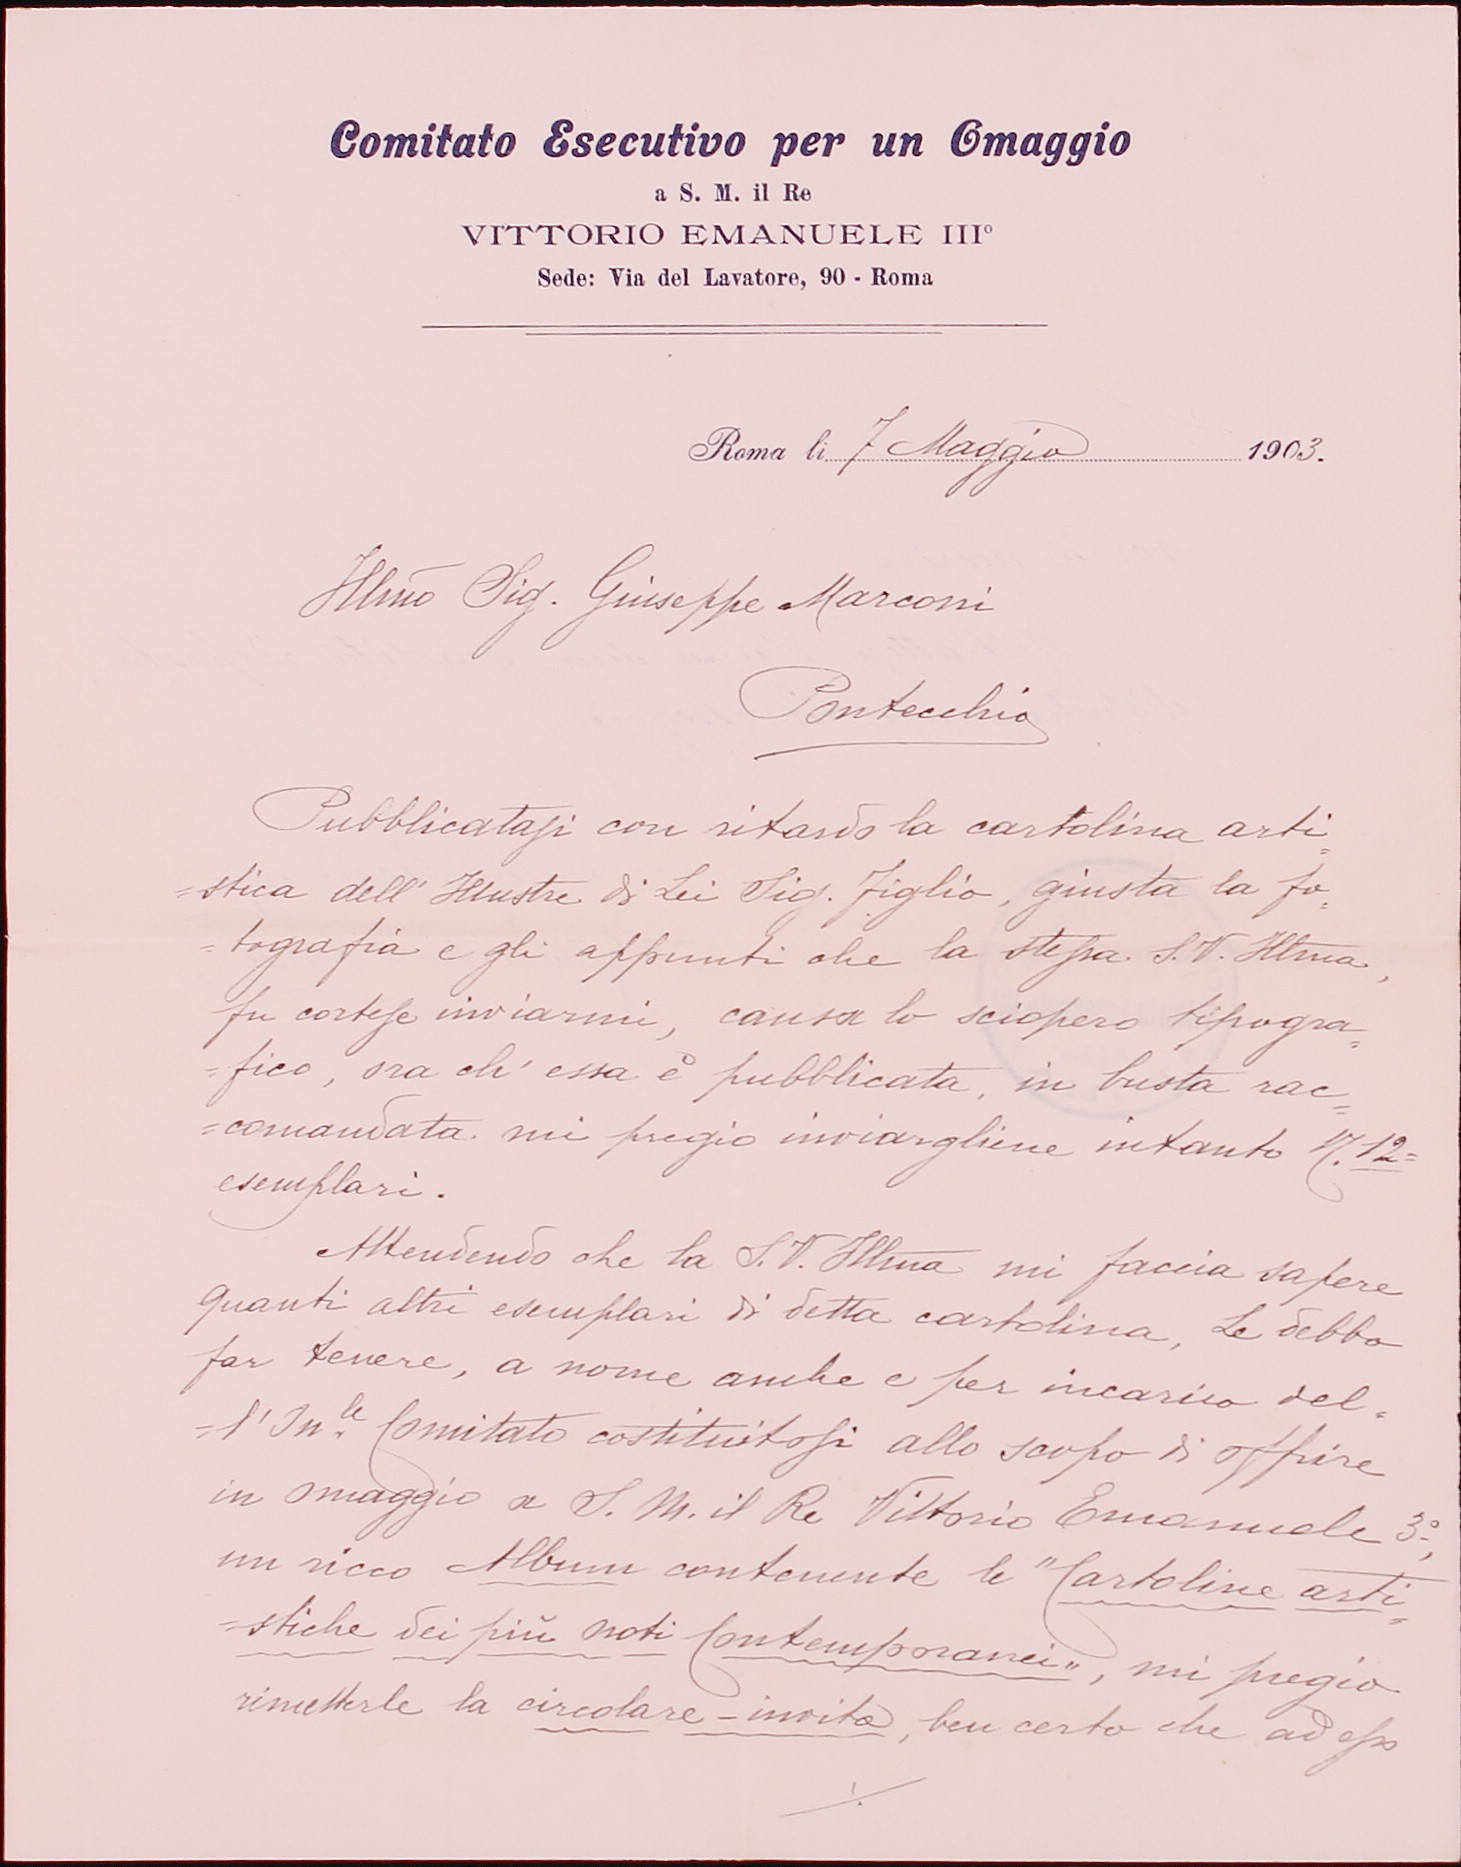 Comitato Esecutivo per un Omaggio
a S. M. il Re
VITTORIO EMANUELE III°
Sede: Via del Lavatore, 90 - Roma
Roma li 7 Maggio 1903.
Illmo Sig. Giuseppe Marconi
Pontecchio
Pubblicatasi con ritardo la cartolina arti=
=stica dell' Illustre di Lei Sig. Figlio, giusta la fo=
=tografia e gli appunti che la stessa S. V. Illma,
fu cortese inviarmi, causa lo sciopero tipogra=
=fico, ora ch' essa è pubblicata, in busta rac=
=comandata mi pregio inviargliene intanto N. 12=
esemplari.
Attendendo che la S. V. Illma mi faccia sapere
quanti altri esemplari di detta cartolina, Le debbo
far tenere, a nome anche e per incarico del=
=l' On.le Comitato costituitosi allo scopo di offrire
in omaggio a S. M. il Re Vittorio Emanuele 3°,
un ricco Album contenente le "Cartoline arti=
=stiche dei più noti Contemporanei", mi pregio
rimetterle la circolare-invito, ben certo che ad esso
./.